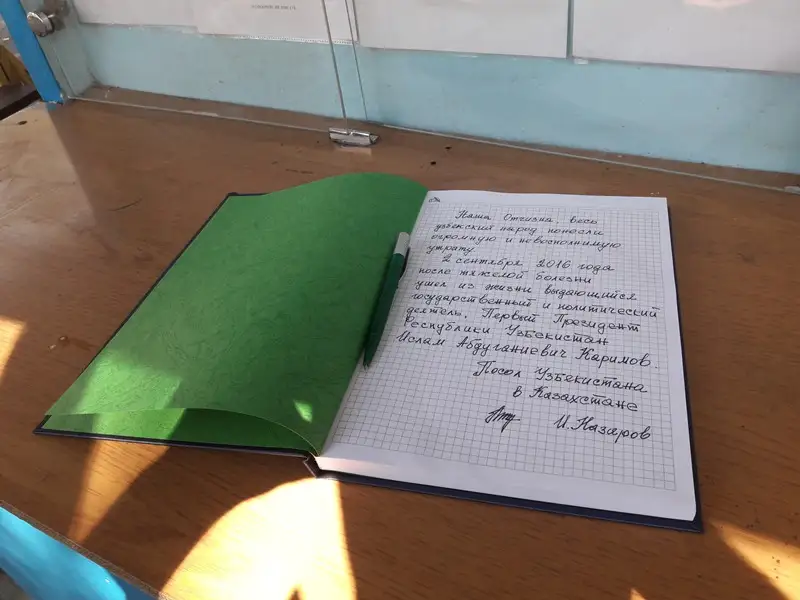 Наша Отчизна, весь
узбекский народ понесли
огромную и невосполнимую
утрату.
2 сентября 2016 года
после тяжелой болезни
ушел из жизни выдающийся
государственный и политический
деятель, Первый Президент
Республики Узбекистан
Ислам Абдуганиевич Каримов.
Посол Узбекистана
в Казахстане
И. Назаров